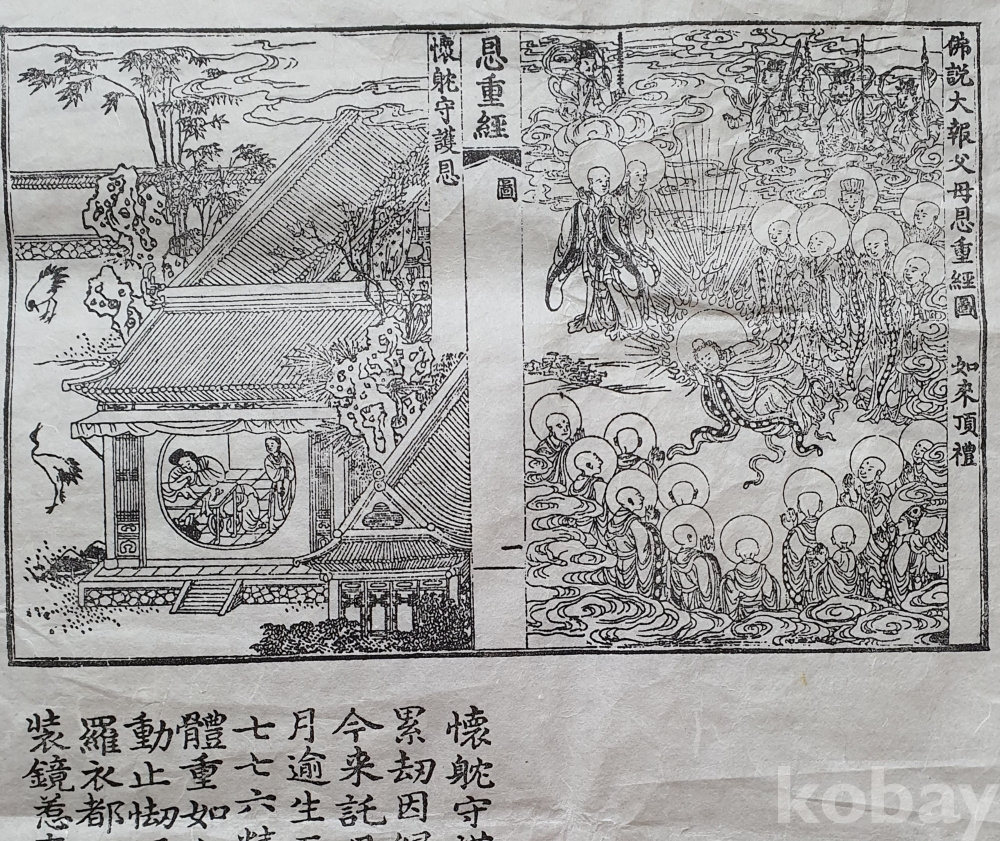 佛說大報父母恩重經圖 如來頂禮
恩重經 圖 一
懷躭守護恩
懷躭守護
累刧因緣
今来託
月逾生五
七七六精
體重如
動止刧
羅衣都
装鏡惹
kobay